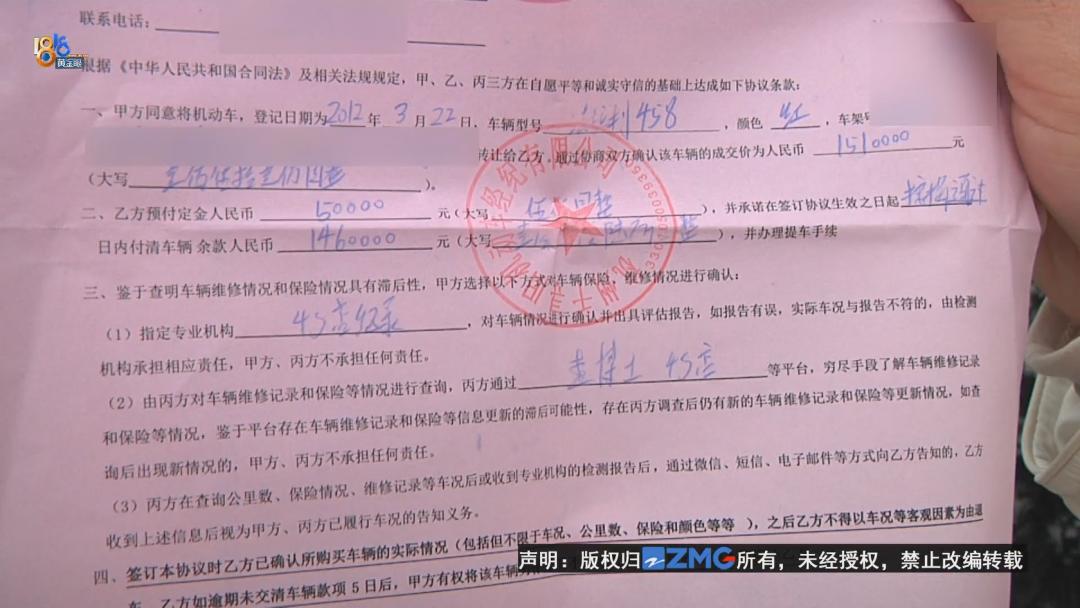 联系电话：
1818
黄金眼
根据《中华人民共和国合同法》及相关法规规定，甲、乙、丙三方在自愿平等和诚实守信的基础上达成如下协议条款：
一、甲方同意将机动车，登记日期为2012年3月22日，车辆型号 法拉利458，颜色 红，车架号
转让给乙方，通过协商双方确认该车辆的成交价为人民币 1510000 元
（大写 ）。
二、乙方预付定金人民币 50000 元（大写 伍万圆整），并承诺在签订协议生效之日起
日内付清车辆 余款人民币 1460000 元（大写 ），并办理提车手续
三、鉴于查明车辆维修情况和保险情况具有滞后性，甲方选择以下方式对车辆保险，维修情况进行确认：
（1）指定专业机构 4S店纪录 ，对车辆情况进行确认并出具评估报告，如报告有误，实际车况与报告不符的，由检测
机构承担相应责任，甲方、丙方不承担任何责任。
（2）由丙方对车辆维修记录和保险等情况进行查询，丙方通过 查博士 4S店 等平台，穷尽手段了解车辆维修记录
和保险等情况，鉴于平台存在车辆维修记录和保险等信息更新的滞后可能性，存在丙方调查后仍有新的车辆维修记录和保险等更新情况，如查
询后出现新情况的，甲方、丙方不承担任何责任。
（3）丙方在查询公里数、保险情况、维修记录等车况后或收到专业机构的检测报告后，通过微信、短信、电子邮件等方式向乙方告知的，乙方
收到上述信息后视为甲方、丙方已履行车况的告知义务。
四、签订本协议时乙方已确认所购买车辆的实际情况（包括但不限于车况、公里数、保险和颜色等等 ），之后乙方不得以车况等客观因素为由退
车，乙方如逾期未交清车辆款项5日后，甲方有权将该车辆
声明：版权归ZMG所有，未经授权，禁止改编转载